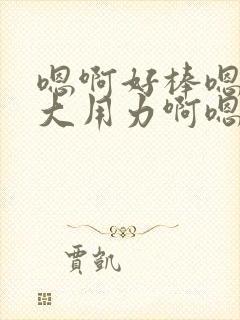 嗯啊好棒嗯
大用力啊嗯
贾凯